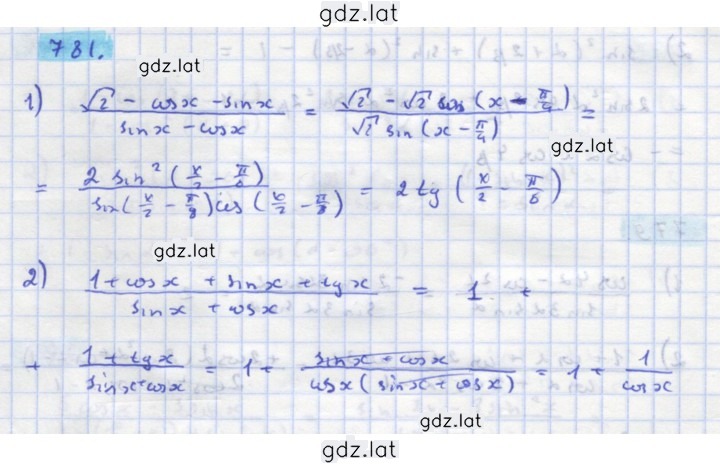 gdz.lat
781.
gdz.lat
1) (√2 - cosx - sinx)/(sinx - cosx) = (√2 - √2 cos(x - π/4))/(√2 sin(x - π/4)) =
gdz.lat
= (2 sin²(x/2 - π/6))/(sin(x/2 - π/8)cos(x/2 - π/8)) = 2 tg(x/2 - π/6)
gdz.lat
2) (1 + cosx + sinx + tgx)/(sinx + cosx) = 1 +
+ (1 + tgx)/(sinx+cosx) = 1 + (sinx + cosx)/(cosx(sinx + cosx)) = 1 + 1/cosx
gdz.lat
gdz.lat